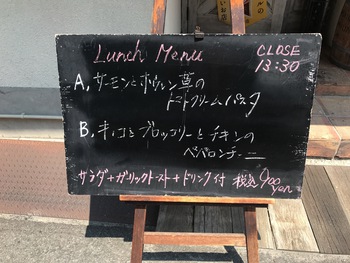 Lunch Menu
CLOSE
13:30
A, サーモンとホウレン草の
トマトクリームパスタ
B, キノコとブロッコリーとチキンの
ペペロンチーニ
サラダ+ガーリックトースト+ドリンク付 税込900yen